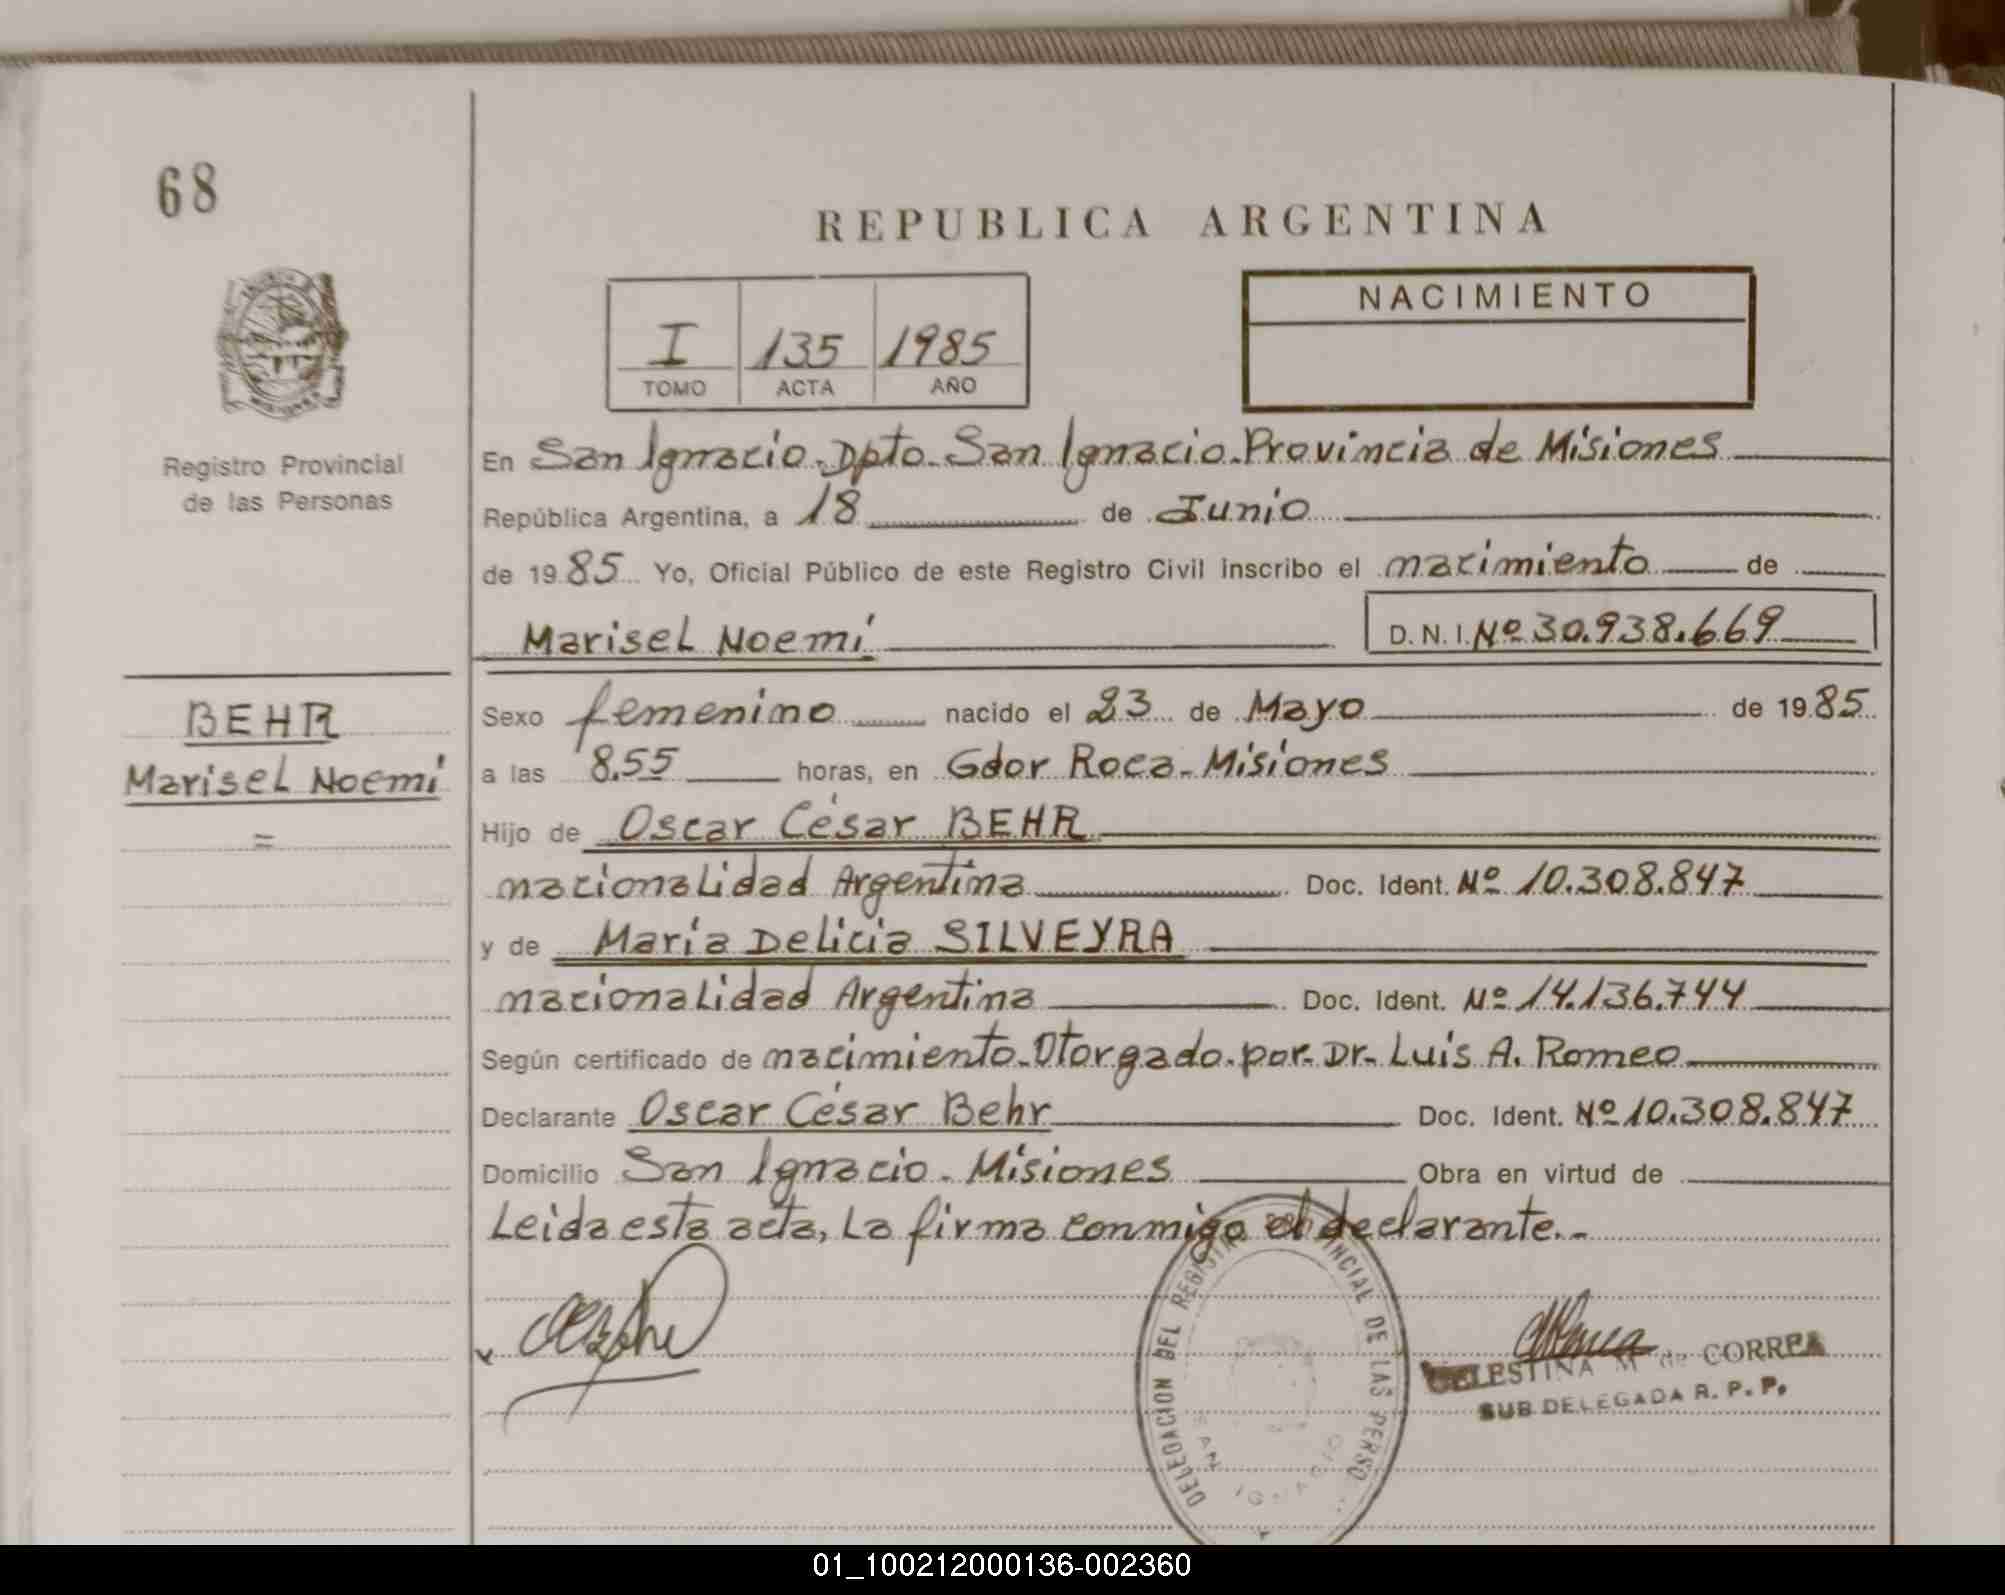 68
REPUBLICA ARGENTINA
I 135 1985
TOMO ACTA AÑO
NACIMIENTO
Registro Provincial
de las Personas
En San Ignacio. Dpto. San Ignacio. Provincia de Misiones
República Argentina, a 18 de Junio
de 1985 Yo, Oficial Público de este Registro Civil inscribo el nacimiento de
Marisel Noemí D. N. I. Nº 30.938.669
BEHR
Marisel Noemí
=
Sexo femenino nacido el 23 de Mayo de 1985
a las 8.55 horas, en Gdor Roca - Misiones
Hijo de Oscar César BEHR
nacionalidad Argentina Doc. Ident. Nº 10.308.847
y de María Delicia SILVEYRA
nacionalidad Argentina Doc. Ident. Nº 14.136.744
Según certificado de nacimiento - Otorgado - por - Dr - Luis A. Romeo
Declarante Oscar César Behr Doc. Ident. Nº 10.308.847
Domicilio San Ignacio - Misiones Obra en virtud de
Leida esta acta, La firma conmigo el declarante.-
DELEGACION DEL DE LAS PERSO
SAN IGNACIO
CELESTINA M. de CORREA
SUB DELEGADA R. P. P.
01_100212000136-002360